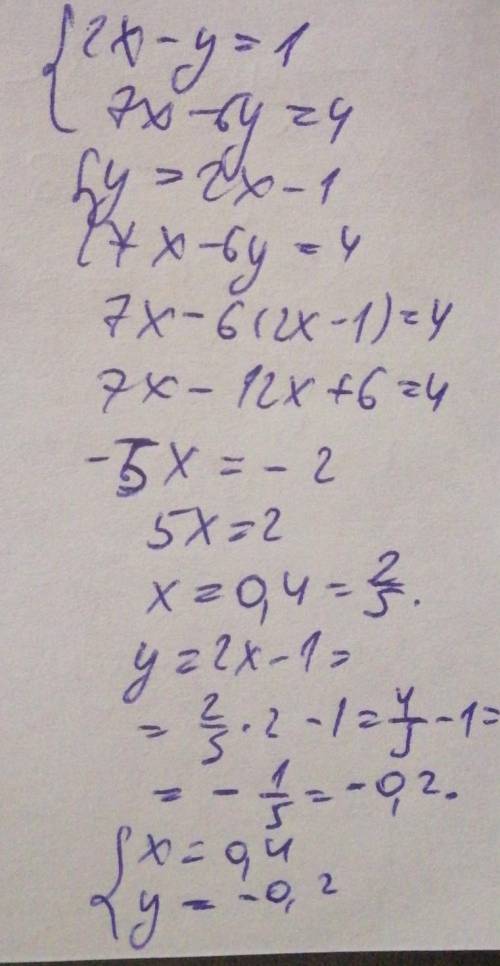 {2x - y = 1
7x - 6y = 4
{y = 2x - 1
7x - 6y = 4
7x - 6(2x - 1) = 4
7x - 12x + 6 = 4
-5x = -2
5x = 2
x = 0,4 = 2/5.
y = 2x - 1 =
= 2/5 · 2 - 1 = 4/5 - 1 =
= - 1/5 = -0,2.
{x = 0,4
y = -0,2